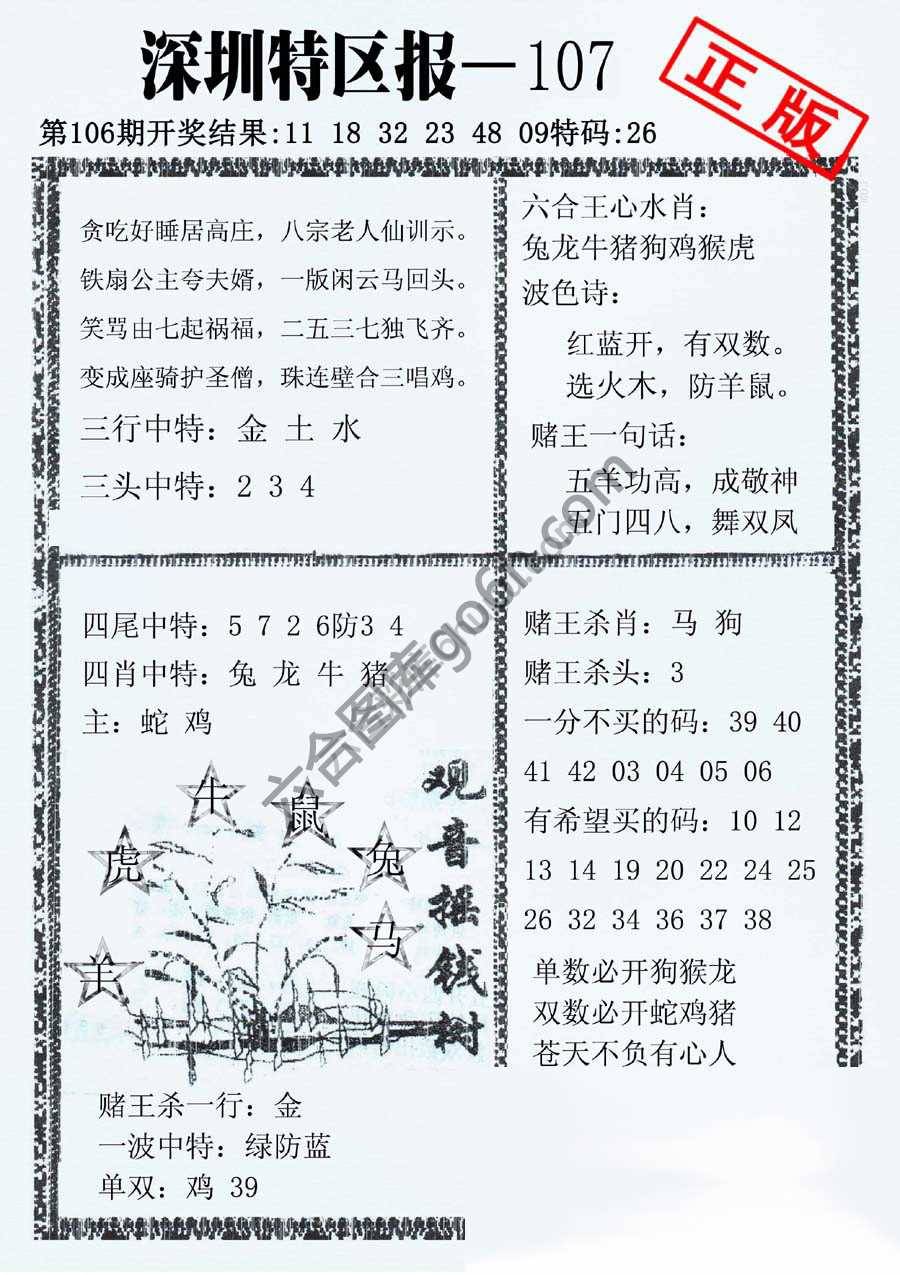 深圳特区报—107
正版
第106期开奖结果:11 18 32 23 48 09特码:26
贪吃好睡居高庄，八宗老人仙训示。
铁扇公主夸夫婿，一版闲云马回头。
笑骂由七起祸福，二五三七独飞齐。
变成座骑护圣僧，珠连壁合三唱鸡。
三行中特：金 土 水
三头中特：2 3 4
六合王心水肖：
兔龙牛猪狗鸡猴虎
波色诗：
红蓝开，有双数。
选火木，防羊鼠。
赌王一句话：
五羊功高，成敬神
五门四八，舞双凤
四尾中特：5 7 2 6防3 4
四肖中特：兔 龙 牛 猪
主：蛇 鸡
牛
鼠
虎
兔
马
羊
观音摇钱树
赌王杀一行：金
一波中特：绿防蓝
单双：鸡 39
赌王杀肖：马 狗
赌王杀头：3
一分不买的码：39 40
41 42 03 04 05 06
有希望买的码：10 12
13 14 19 20 22 24 25
26 32 34 36 37 38
单数必开狗猴龙
双数必开蛇鸡猪
苍天不负有心人
六合图库go6h.com